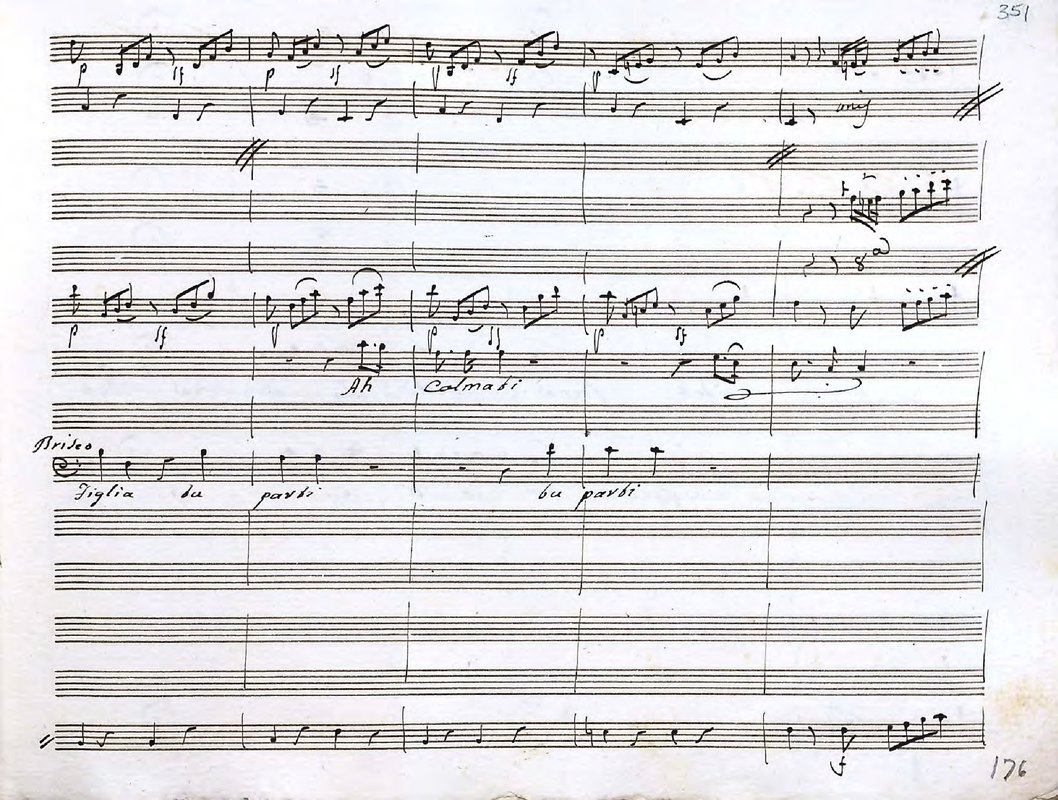 351
p sf p sf p sf p
unis
8a
p sf p p sf p sf
Ah Calmati
Briseo
Figlia tu parti tu parti
f
176